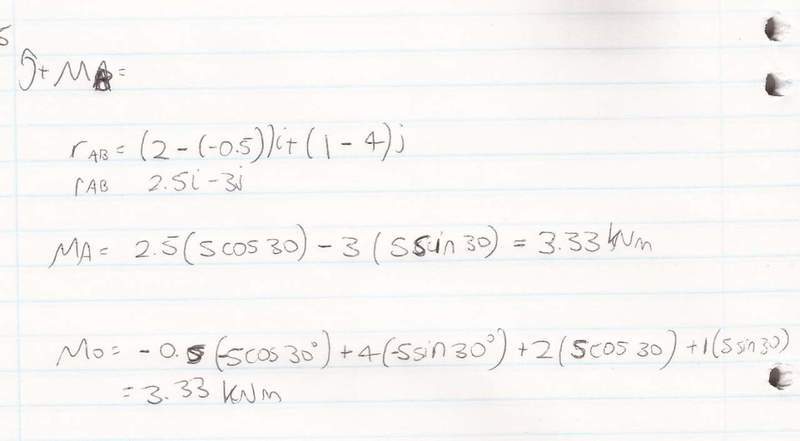 5
↺+ MA=
rAB = (2 - (-0.5))i + (1 - 4)j
rAB 2.5i - 3j
MA = 2.5(5cos30) - 3(5sin30) = 3.33 kNm
Mo = -0.5(-5cos30°) + 4(-5sin30°) + 2(5cos30) + 1(5sin30)
= 3.33 kNm